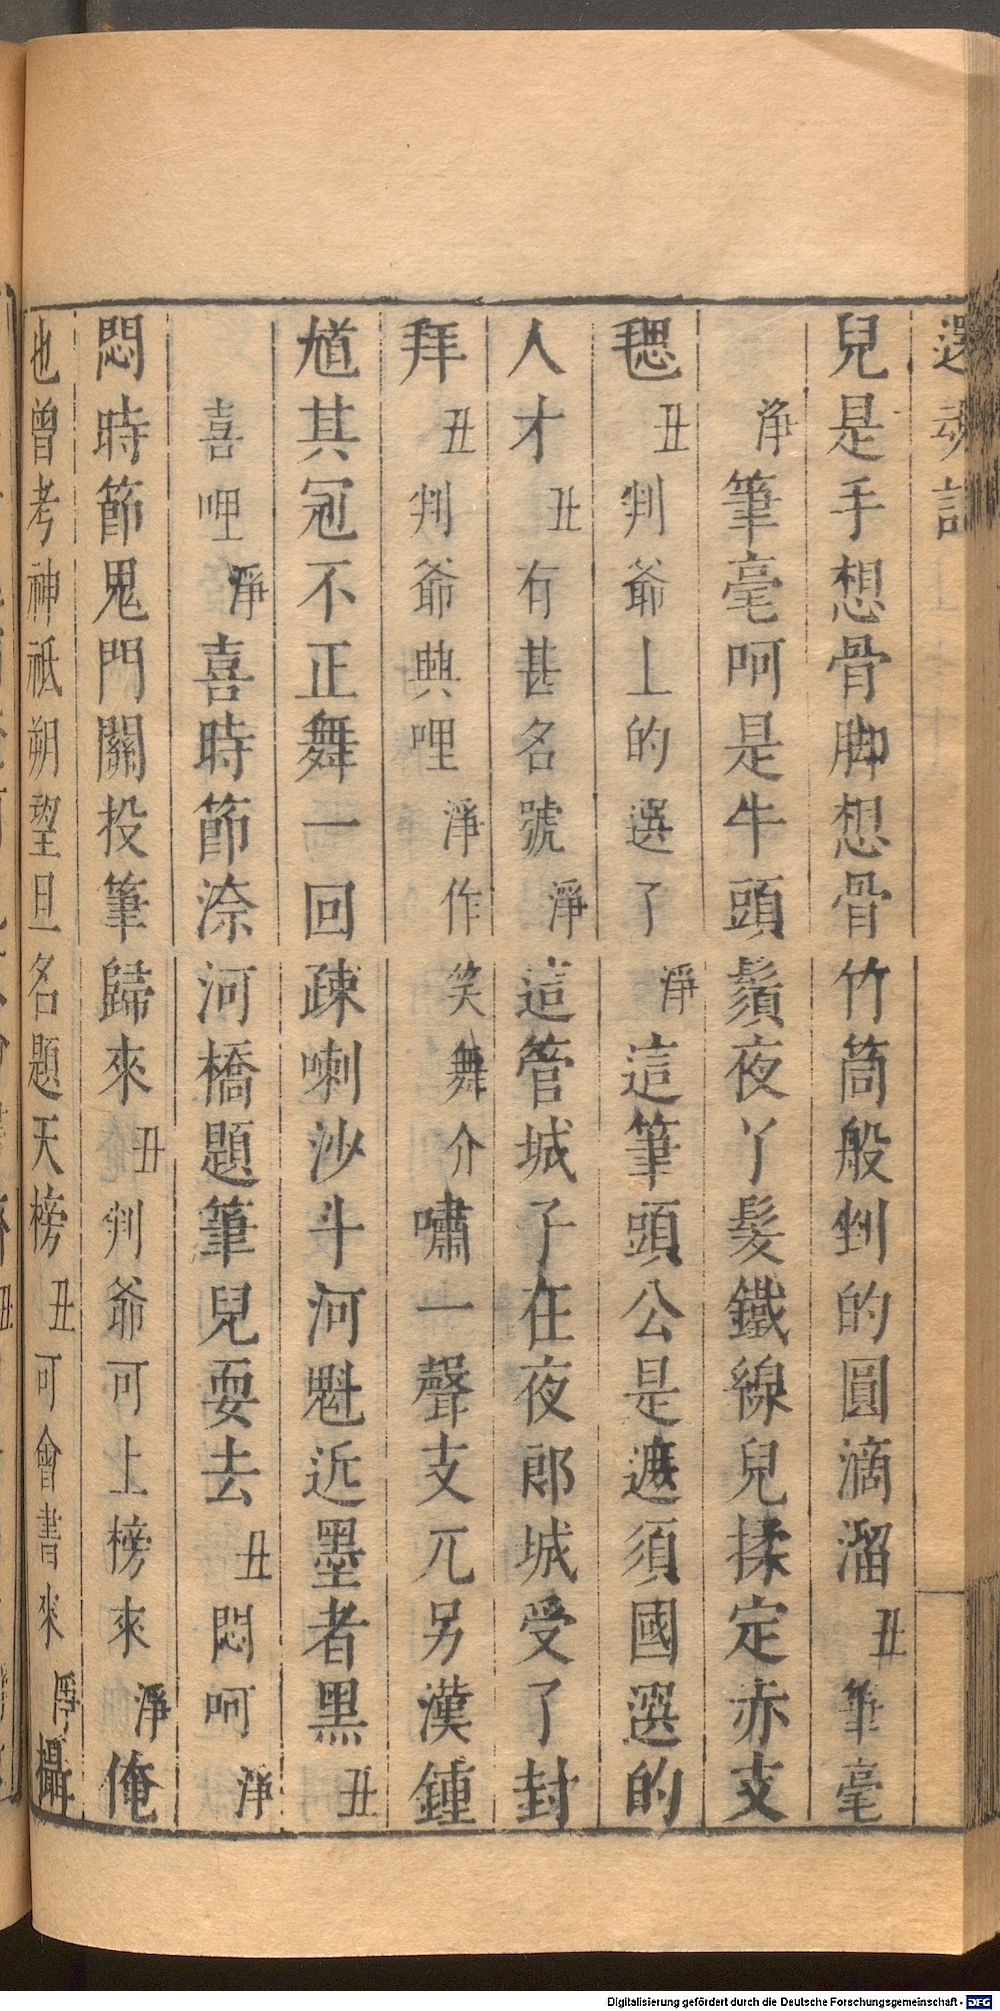 還魂記
兒是手想骨脚想骨竹筒般剉的圓滴溜丑筆毫
淨筆毫呵是牛頭鬚夜丫髮鐵線兒揉定赤支
毸丑判爺上的選了淨這筆頭公是遮須國選的
人才丑有甚名號淨這管城子在夜郎城受了封
拜丑判爺興哩淨作笑舞介嘯一聲支兀另漢鍾
馗其冠不正舞一回疎喇沙斗河魁近墨者黑丑
喜呷淨喜時節渿河橋題筆兒耍去丑悶呵淨
悶時節鬼門關投筆歸來丑判爺可上榜來淨俺
也曾考神祇朔望旦名題天榜丑可會書來淨攝
Digitalisierung gefördert durch die Deutsche Forschungsgemeinschaft - DFG